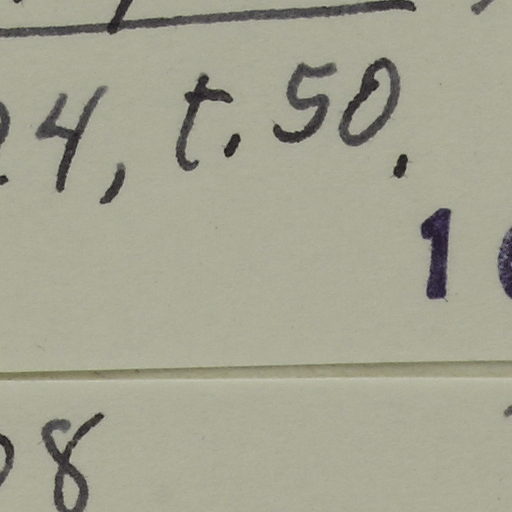 24, t. 50.
1
8